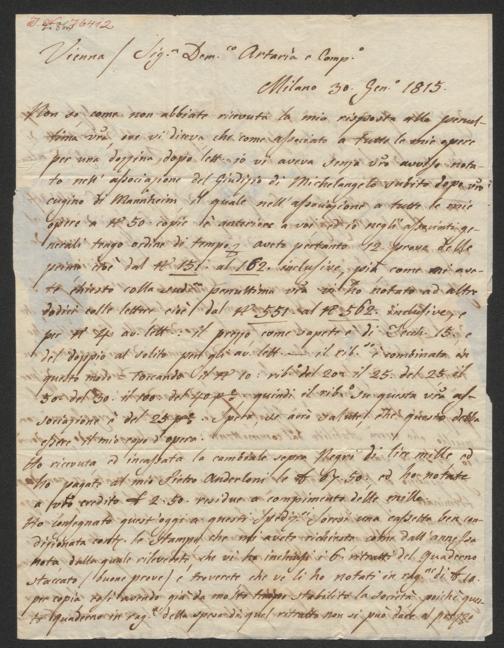 J. N. 76412
Vienna / Sig.r Dom.co Artaria e Comp.o
Milano 30. Gen.o 1815.
Non so come non abbiate ricevuta la mia risposta alla penul-
tima vra, ove vi diceva che come associato a tutte le mie opere
per una dozzina dopo lett. io vi aveva senza vro avviso nota-
to nell'associazione del Giudizio di Michelangelo subito dopo vro
cugino di Mannheim il quale nell'associazione a tutte le mie
opere a N.o 50 copie è anteriore a voi ed io negli associati ge-
nerali tengo ordine di tempo; avete pertanto 12 prove delle
prime cioè dal N.o 151. al 162. inclusive, più come mi ave-
te chiesto colla penultima vra vi ho notato ad altre
dodici colle lettere cioè dal N.o 551 al N.o 562. inclusive, e
per N.o 4 av. lett. il prezzo come sapete è di Zecchi 15. e
del doppio al solito per gli av. lett. il rib.o è combinato in
questo modo
quindi il rib.o in questa vra as-
sociazione è del 25 p. Spero, se avrò salute, che questo debba
essere il mio capo d'opera.
Ho ricevuta ed incassata la cambiale sopra Negri di lire mille ed
ho pagati al mio Pietro Anderloni le 67.50. ed ho notate
a vro credito 2.50. residue a compimento delle mille.
Ho consegnato quest'oggi a questi Sped.ri una cassetta ben con-
dizionata cont.e le Stampe che mi avete richieste come dall'annessa
nota dalla quale rileverete che vi ho inchiusi 6. ritratti del Quaderno
staccato / buone prove / e troverete che ve li ho notati in rag.e di
per copia soli avendo già da molto tempo stabilito la Società, poichè que-
sto Quaderno in rag.e della spesa di quel ritratto non si può dare al